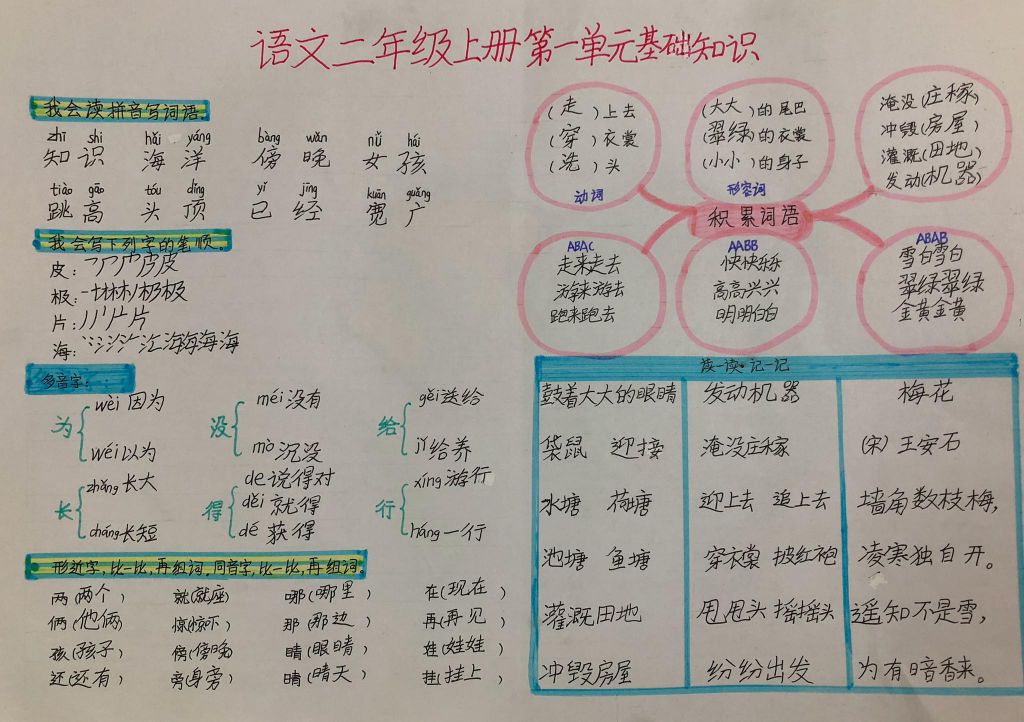 语文二年级上册第一单元基础知识
我会读拼音写词语。
zhī shi hǎi yáng bàng wǎn nǚ hái
知识 海洋 傍晚 女孩
tiào gāo tóu dǐng yǐ jīng kuān guǎng
跳高 头顶 已经 宽广
我会写下列字的笔顺。
皮:
极:
片:
海:
多音字:
为 wèi 因为
wéi 以为
没 méi 没有
mò 沉没
给 gěi 送给
jǐ 给养
长 zhǎng 长大
cháng 长短
得 de 说得对
děi 就得
dé 获得
行 xíng 游行
háng 一行
形近字,比一比,再组词,同音字,比一比,再组词。
两(两个) 就(就座) 哪(哪里) 在(现在)
俩(他俩) 惊(惊吓) 那(那边) 再(再见)
孩(孩子) 傍(傍晚) 睛(眼睛) 娃(娃娃)
还(还有) 旁(身旁) 晴(晴天) 挂(挂上)
(走)上去
(穿)衣裳
(洗)头
动词
(大大)的尾巴
(翠绿)的衣裳
(小小)的身子
形容词
淹没(庄稼)
冲毁(房屋)
灌溉(田地)
发动(机器)
积累词语
ABAC
走来走去
游来游去
跑来跑去
AABB
快快乐乐
高高兴兴
明明白白
ABAB
雪白雪白
翠绿翠绿
金黄金黄
读一读·记一记
鼓着大大的眼睛 发动机器 梅花
袋鼠 迎接 淹没庄稼 (宋)王安石
水塘 荷塘 迎上去 追上去 墙角数枝梅,
池塘 鱼塘 穿衣裳 披红袍 凌寒独自开。
灌溉田地 甩甩头 摇摇头 遥知不是雪,
冲毁房屋 纷纷出发 为有暗香来。